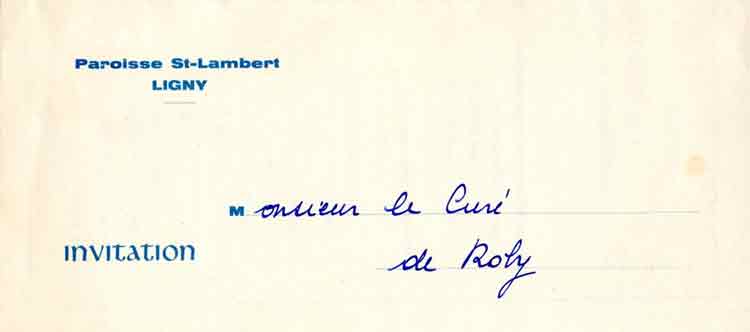 Paroisse St-Lambert
LIGNY
Monsieur le Curé
INVITATION
de Roly